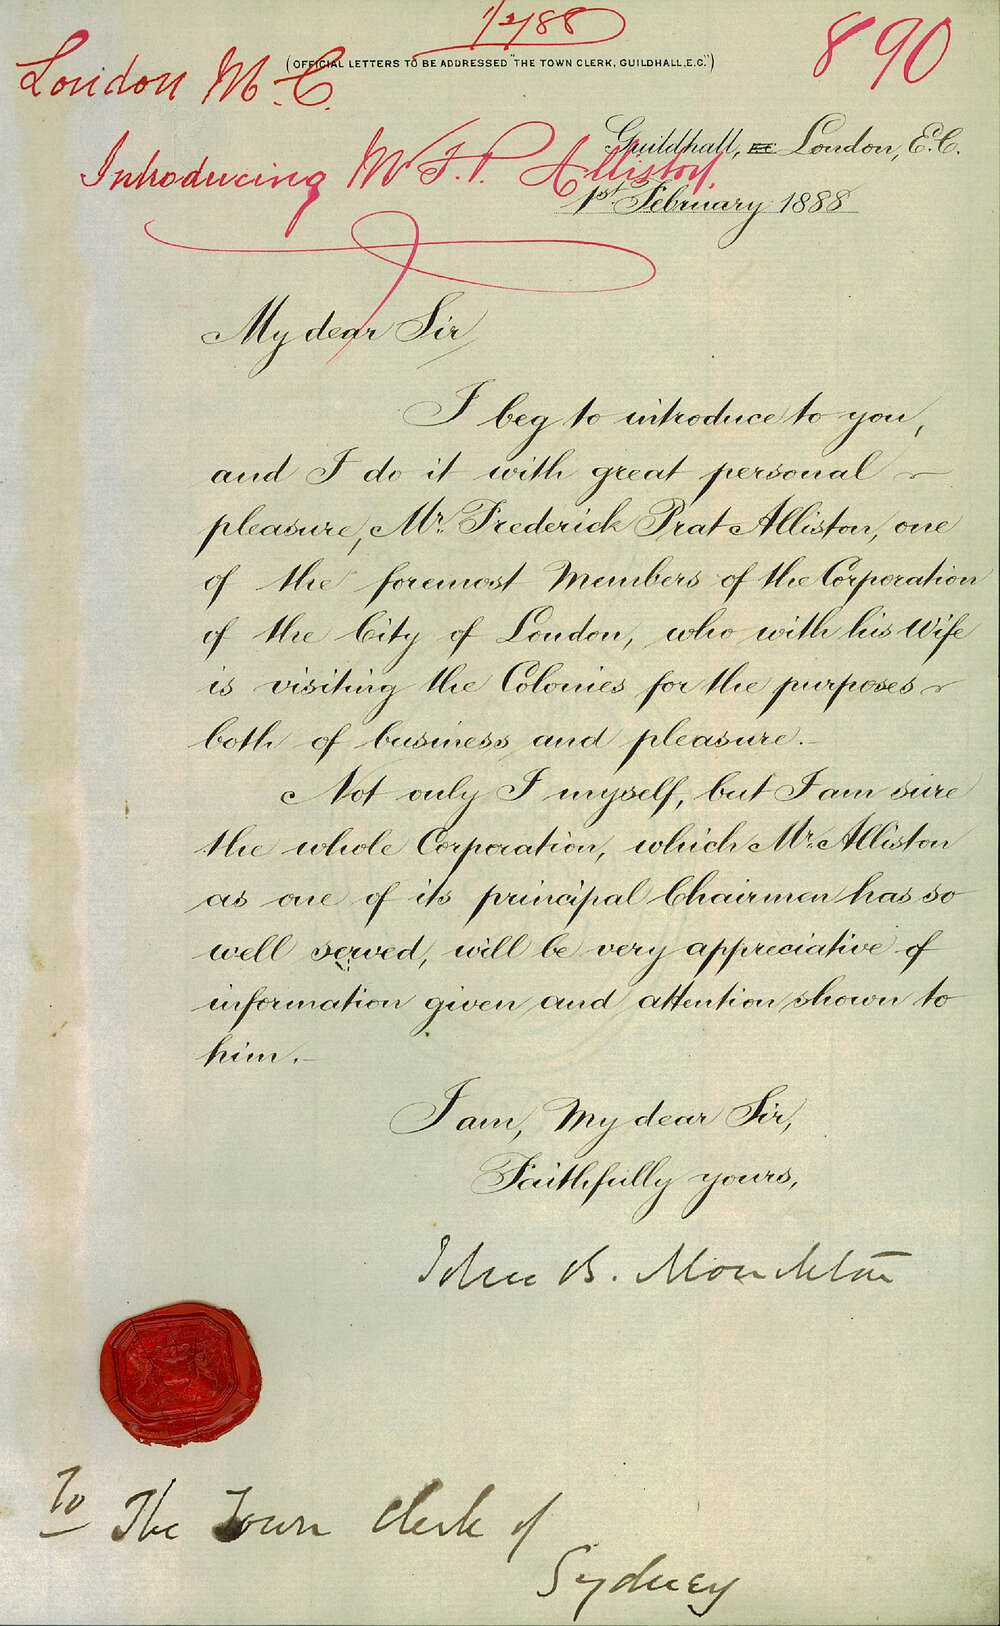 1/2/88
890
London M.C.
(OFFICIAL LETTERS TO BE ADDRESSED "THE TOWN CLERK, GUILDHALL, E.C.")
Guildhall, EC London, E.C.
Introducing Mr F. P. Alliston.
1st February 1888
My dear Sir
I beg to introduce to you,
and I do it with great personal
pleasure, Mr. Frederick Prat Alliston, one
of the foremost Members of the Corporation
of the City of London, who with his Wife
is visiting the Colonies for the purposes
both of business and pleasure.
Not only I myself, but I am sure
the whole Corporation, which Mr. Alliston
as one of its principal Chairmen has so
well served, will be very appreciative of
information given and attention shown to
him.
I am, My dear Sir,
Faithfully yours,
John B. Monckton
To The Town Clerk of
Sydney